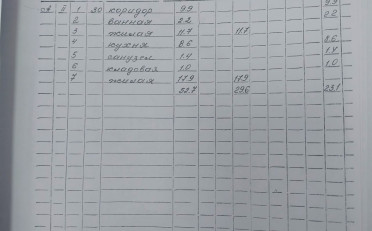 А 5 1 30 коридор 9.9 9.9
2 ванная 2.2 2.2
3 жилая 11.7 11.7
4 кухня 8.6 8.6
5 санузел 1.4 1.4
6 кладовая 1.0 1.0
7 жилая 17.9 17.9
52.7 29.6 23.1